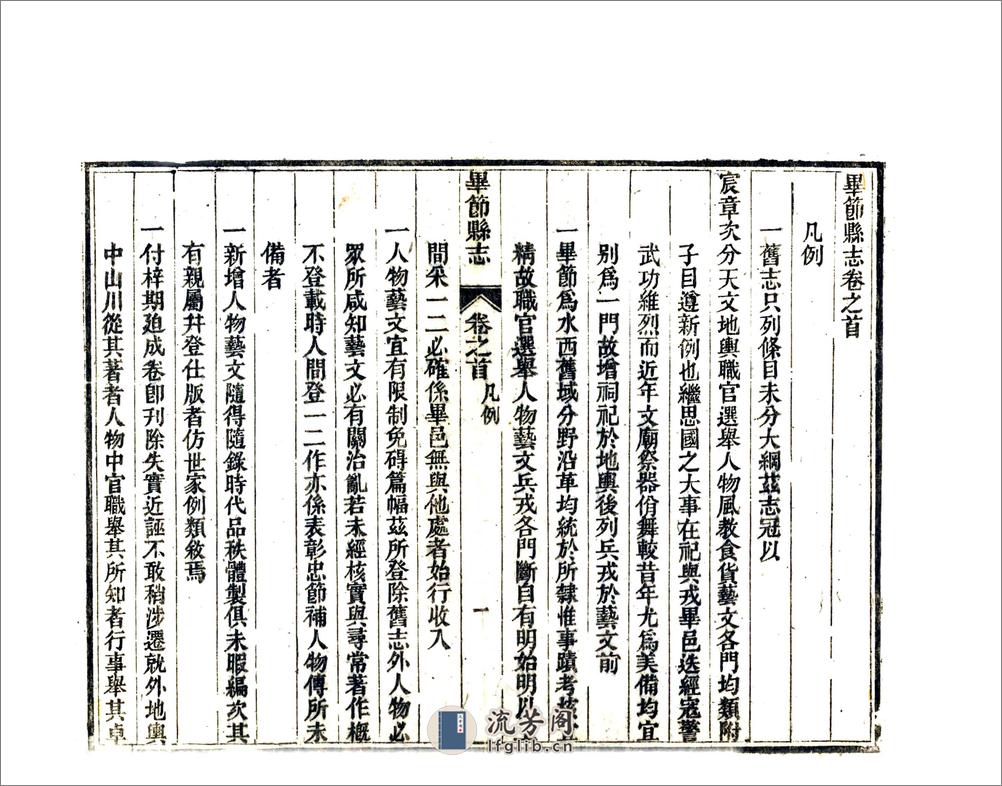 畢節縣志卷之首
凡例
一舊志只列條目未分大綱茲志冠以
宸章次分天文地輿職官選舉人物風教食貨藝文各門均類附
子目遵新例也繼思國之大事在祀與戎畢邑迭經寇警
武功維烈而近年文廟祭器佾舞較昔年尤爲美備均宜
别爲一門故增祠祀於地輿後列兵戎於藝文前
一畢節爲水西舊域分野沿革均統於所隸惟事蹟考核
精故職官選舉人物藝文兵戎各門斷自有明始明以
畢節縣志
卷之首
凡例
一
間采一二必確係畢邑無與他處者始行收入
一人物藝文宜有限制免碍篇幅茲所登除舊志外人物必
眾所咸知藝文必有關治亂若未經核實與尋常著作概
不登載時人間登一二作亦係表彰忠節補人物傳所未
備者
一新增人物藝文隨得隨錄時代品秩體製俱未暇編次其
有親屬幷登仕版者仿世家例類敘焉
一付梓期迫成卷卽刊除失實近誣不敢稍涉遷就外地輿
中山川從其著者人物中官職舉其所知者行事舉其卓
流芳阁
lfglib.cn